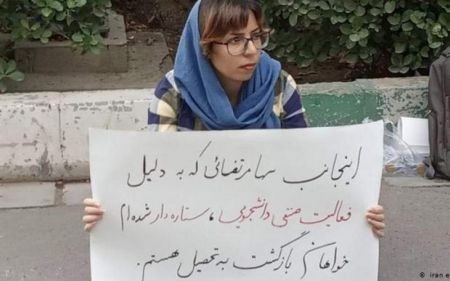 اینجانب سها مرتضائی که به دلیل
فعالیت صنفی دانشجویی، ستاره دار شده ام
خواهان بازگشت به تحصیل هستم.
iran e